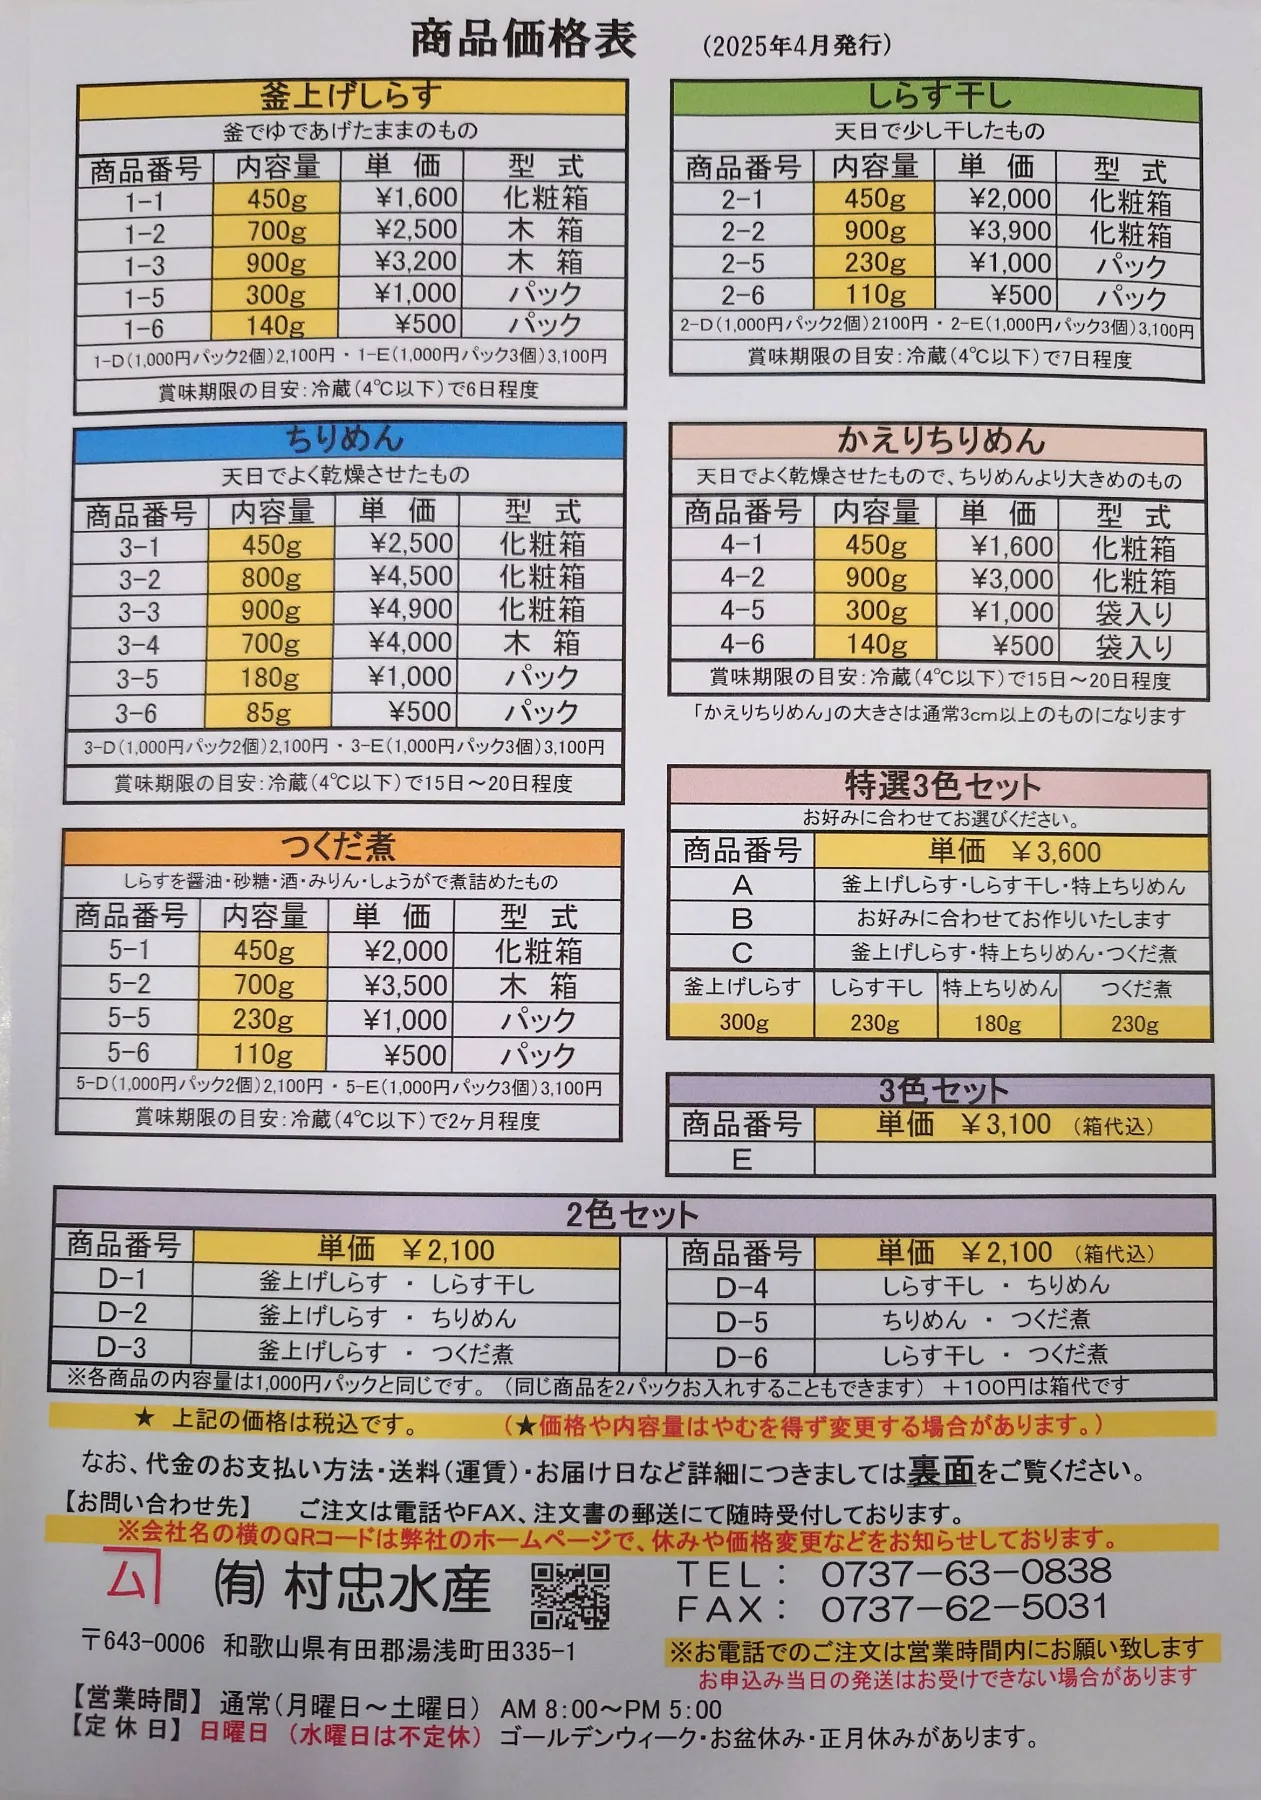 商品価格表 (2025年4月発行)
釜上げしらす
釜でゆであげたままのもの
商品番号 内容量 単価 型式
1-1 450g ¥1,600 化粧箱
1-2 700g ¥2,500 木箱
1-3 900g ¥3,200 木箱
1-5 300g ¥1,000 パック
1-6 140g ¥500 パック
1-D(1,000円パック2個)2,100円・1-E(1,000円パック3個)3,100円
賞味期限の目安:冷蔵(4℃以下)で6日程度
しらす干し
天日で少し干したもの
商品番号 内容量 単価 型式
2-1 450g ¥2,000 化粧箱
2-2 900g ¥3,900 化粧箱
2-5 230g ¥1,000 パック
2-6 110g ¥500 パック
2-D(1,000円パック2個)2100円・2-E(1,000円パック3個)3,100円
賞味期限の目安:冷蔵(4℃以下)で7日程度
ちりめん
天日でよく乾燥させたもの
商品番号 内容量 単価 型式
3-1 450g ¥2,500 化粧箱
3-2 800g ¥4,500 化粧箱
3-3 900g ¥4,900 化粧箱
3-4 700g ¥4,000 木箱
3-5 180g ¥1,000 パック
3-6 85g ¥500 パック
3-D(1,000円パック2個)2,100円・3-E(1,000円パック3個)3,100円
賞味期限の目安:冷蔵(4℃以下)で15日～20日程度
かえりちりめん
天日でよく乾燥させたもので、ちりめんより大きめのもの
商品番号 内容量 単価 型式
4-1 450g ¥1,600 化粧箱
4-2 900g ¥3,000 化粧箱
4-5 300g ¥1,000 袋入り
4-6 140g ¥500 袋入り
賞味期限の目安:冷蔵(4℃以下)で15日～20日程度
「かえりちりめん」の大きさは通常3cm以上のものになります
つくだ煮
しらすを醤油・砂糖・酒・みりん・しょうがで煮詰めたもの
商品番号 内容量 単価 型式
5-1 450g ¥2,000 化粧箱
5-2 700g ¥3,500 木箱
5-5 230g ¥1,000 パック
5-6 110g ¥500 パック
5-D(1,000円パック2個)2,100円・5-E(1,000円パック3個)3,100円
賞味期限の目安:冷蔵(4℃以下)で2ヶ月程度
特選3色セット
お好みに合わせてお選びください。
商品番号 単価 ¥3,600
A 釜上げしらす・しらす干し・特上ちりめん
B お好みに合わせてお作りいたします
C 釜上げしらす・特上ちりめん・つくだ煮
釜上げしらす しらす干し 特上ちりめん つくだ煮
300g 230g 180g 230g
3色セット
商品番号 単価 ¥3,100 (箱代込)
E
2色セット
商品番号 単価 ¥2,100 商品番号 単価 ¥2,100 (箱代込)
D-1 釜上げしらす・しらす干し D-4 しらす干し・ちりめん
D-2 釜上げしらす・ちりめん D-5 ちりめん・つくだ煮
D-3 釜上げしらす・つくだ煮 D-6 しらす干し・つくだ煮
※各商品の内容量は1,000円パックと同じです。(同じ商品を2パックお入れすることもできます) +100円は箱代です
★ 上記の価格は税込です。 (★価格や内容量はやむを得ず変更する場合があります。)
なお、代金のお支払い方法・送料(運賃)・お届け日など詳細につきましては裏面をご覧ください。
【お問い合わせ先】 ご注文は電話やFAX、注文書の郵送にて随時受付しております。
※会社名の横のQRコードは弊社のホームページで、休みや価格変更などをお知らせしております。
ム (有)村忠水産
TEL: 0737-63-0838
FAX: 0737-62-5031
〒643-0006 和歌山県有田郡湯浅町田335-1
※お電話でのご注文は営業時間内にお願い致します
お申込み当日の発送はお受けできない場合があります
【営業時間】 通常(月曜日～土曜日) AM 8:00～PM 5:00
【定休日】 日曜日 (水曜日は不定休) ゴールデンウィーク・お盆休み・正月休みがあります。